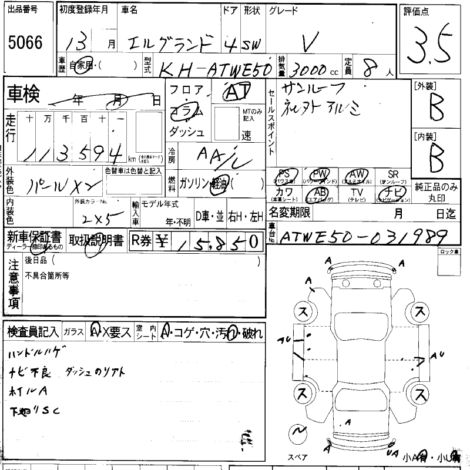 出品番号 初度登録年月 車名 ドア 形状 グレード 評価点
5066 13 月 エルグランド 4 SW V 3.5
車歴 自家用 型式 KH-ATWE50 排気量 3000 cc 定員 8 人
車検 年 月 日 フロア AT
コラム MTのみ記入
ダッシュ 速
セールスポイント サンルーフ
【外装】 B
【内装】 B
走行 十万 万 千 百 十
113,594 km
冷房 AAC
燃料 ガソリン 軽油
外装色 パールメン 色替車は色替と記入
内装色 外装カラーNo. 2X5
輸入車 モデル年式 年・不明 D車・並 右H・左H
PS PW AW SR
カワ AB TV ナビ
純正品のみ丸印
名変期限 月 日迄
新車保証書 取扱説明書 R券 ¥15,850
車台No. ATWE50-031989
注意事項 後日品
不具合箇所等
ロック車
検査員記入 ガラス A・X要ス 室内シート A・コゲ・穴・汚・破れ
ハンドルハゲ
ナビ不良
ホイルA
下廻りSC
A
A
ス ス
A AU
ス ス
A UA
スペア 小A 小U